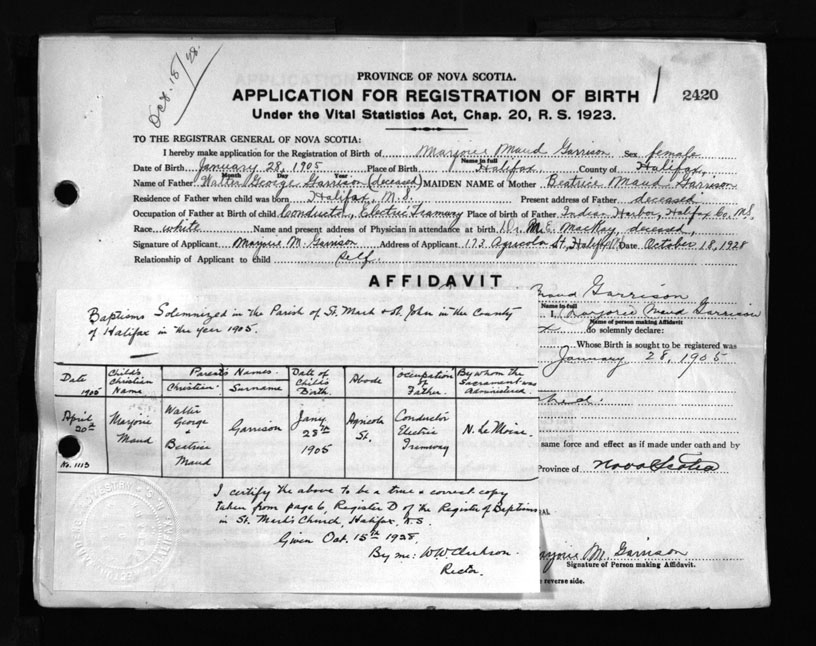 Oct. 18/28.
PROVINCE OF NOVA SCOTIA.
APPLICATION FOR REGISTRATION OF BIRTH
2420
Under the Vital Statistics Act, Chap. 20, R. S. 1923.
TO THE REGISTRAR GENERAL OF NOVA SCOTIA:
I hereby make application for the Registration of Birth of Marjorie Maud Garrison Sex female
Name in full
Date of Birth January 28, 1905 Place of Birth Halifax County of Halifax,
Month Day Year
Name of Father Walter George Garrison (deceased) MAIDEN NAME of Mother Beatrice Maud Garrison
Residence of Father when child was born Halifax, N.S. Present address of Father deceased
Occupation of Father at Birth of child Conductor, Electric Tramway Place of birth of Father Indian Harbor, Halifax Co. N.S.
Race white Name and present address of Physician in attendance at birth Dr. M.E. MacKay, deceased,
Signature of Applicant Marjorie M. Garrison Address of Applicant 173 Agricola St, Halifax Date October 18, 1928
Relationship of Applicant to child Self.
AFFIDAVIT
Maud Garrison
Name in full
I, Marjorie Maud Garrison
Name of person making Affidavit
do solemnly declare:
Whose Birth is sought to be registered was
January 28, 1905
same force and effect as if made under oath and by
Province of Nova Scotia
Marjorie M. Garrison
Signature of Person making Affidavit.
reverse side.
Baptisms Solemnized in the Parish of St. Mark & St. John in the County
of Halifax in the year 1905.
Date 1905
Child's Christian Name
Parents Names.
Christian.
Surname
Date of Child's Birth.
Abode
Occupation of Father.
By whom the Sacrament was Administered.
April 20th
No. 1113
Marjorie Maud
Walter George & Beatrice Maud
Garrison
Jany. 28th 1905
Agricola St.
Conductor Electric Tramway
N. Le Moine.
I certify the above to be a true & correct copy
taken from page 6, Register D of the Register of Baptisms
in St. Mark's Church, Halifax, N.S.
Given Oct. 15th 1928.
By me: W.W. Clarkson.
Rector.